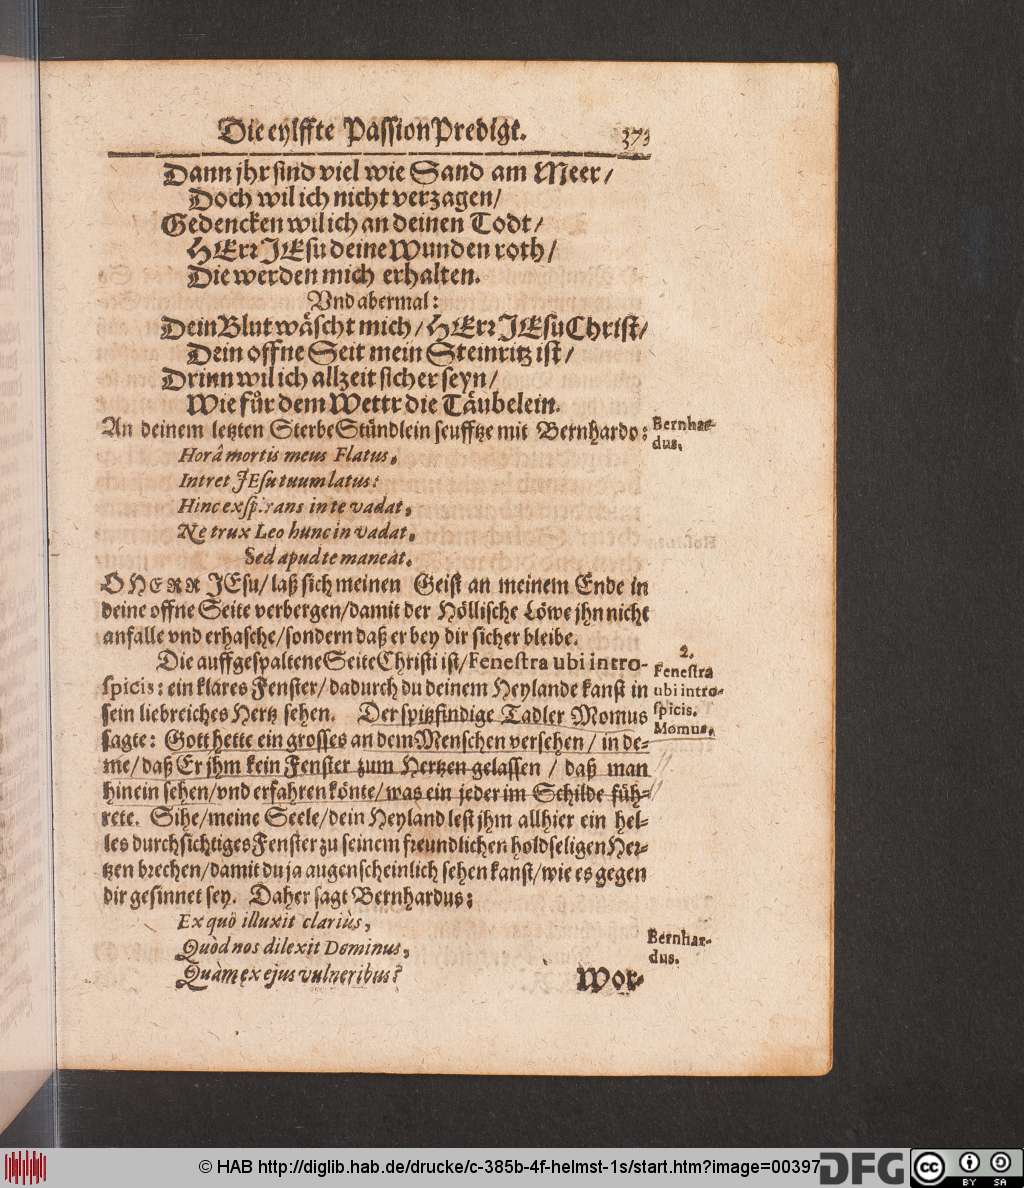 Die eylffte Passion Predigt. 373
Dann jhr sind viel wie Sand am Meer/
Doch wil ich nicht verzagen/
Gedencken wil ich an deinen Todt/
HErr JEsu deine Wunden roth/
Die werden mich erhalten.
Vnd abermal:
Dein Blut wäscht mich/ HErr JEsu Christ/
Dein offne Seit mein Steinritz ist/
Drinn wil ich allzeit sicher seyn/
Wie für dem Wettr die Täubelein.
An deinem letzten SterbeStündlein seufftze mit Bernhardo:
Bernhar-
dus.
Horâ mortis meus Flatus,
Intret JEsu tuum latus:
Hinc exspirans in te vadat,
Ne trux Leo hunc invadat,
Sed apud te maneat.
O HERR JEsu/ laß sich meinen Geist an meinem Ende in
deine offne Seite verbergen/damit der Höllische Löwe jhn nicht
anfalle vnd erhasche/sondern daß er bey dir sicher bleibe.
Die auffgespaltene Seite Christi ist/Fenestra ubi intro-
spicis: ein klares Fenster/dadurch du deinem Heylande kanst in
sein liebreiches Hertz sehen. Der spitzfindige Tadler Momus
sagte: Gott hette ein grosses an dem Menschen versehen/ in de-
me/daß Er jhm kein Fenster zum Hertzen gelassen / daß man
hinein sehen/vnd erfahren könte/was ein jeder im Schilde füh-
rete. Sihe/meine Seele/dein Heyland lest jhm allhier ein hel-
les durchsichtiges Fenster zu seinem freundlichen holdseligen Her-
tzen brechen/damit du ja augenscheinlich sehen kanst/wie es gegen
dir gesinnet sey. Daher sagt Bernhardus:
2.
Fenestra
ubi intro-
spicis.
Momus.
Ex quô illuxit clariùs,
Quòd nos dilexit Dominus,
Quàm ex ejus vulneribus?
Bernhar-
dus.
Wor-
© HAB http://diglib.hab.de/drucke/c-385b-4f-helmst-1s/start.htm?image=00397
DFG
cc BY SA